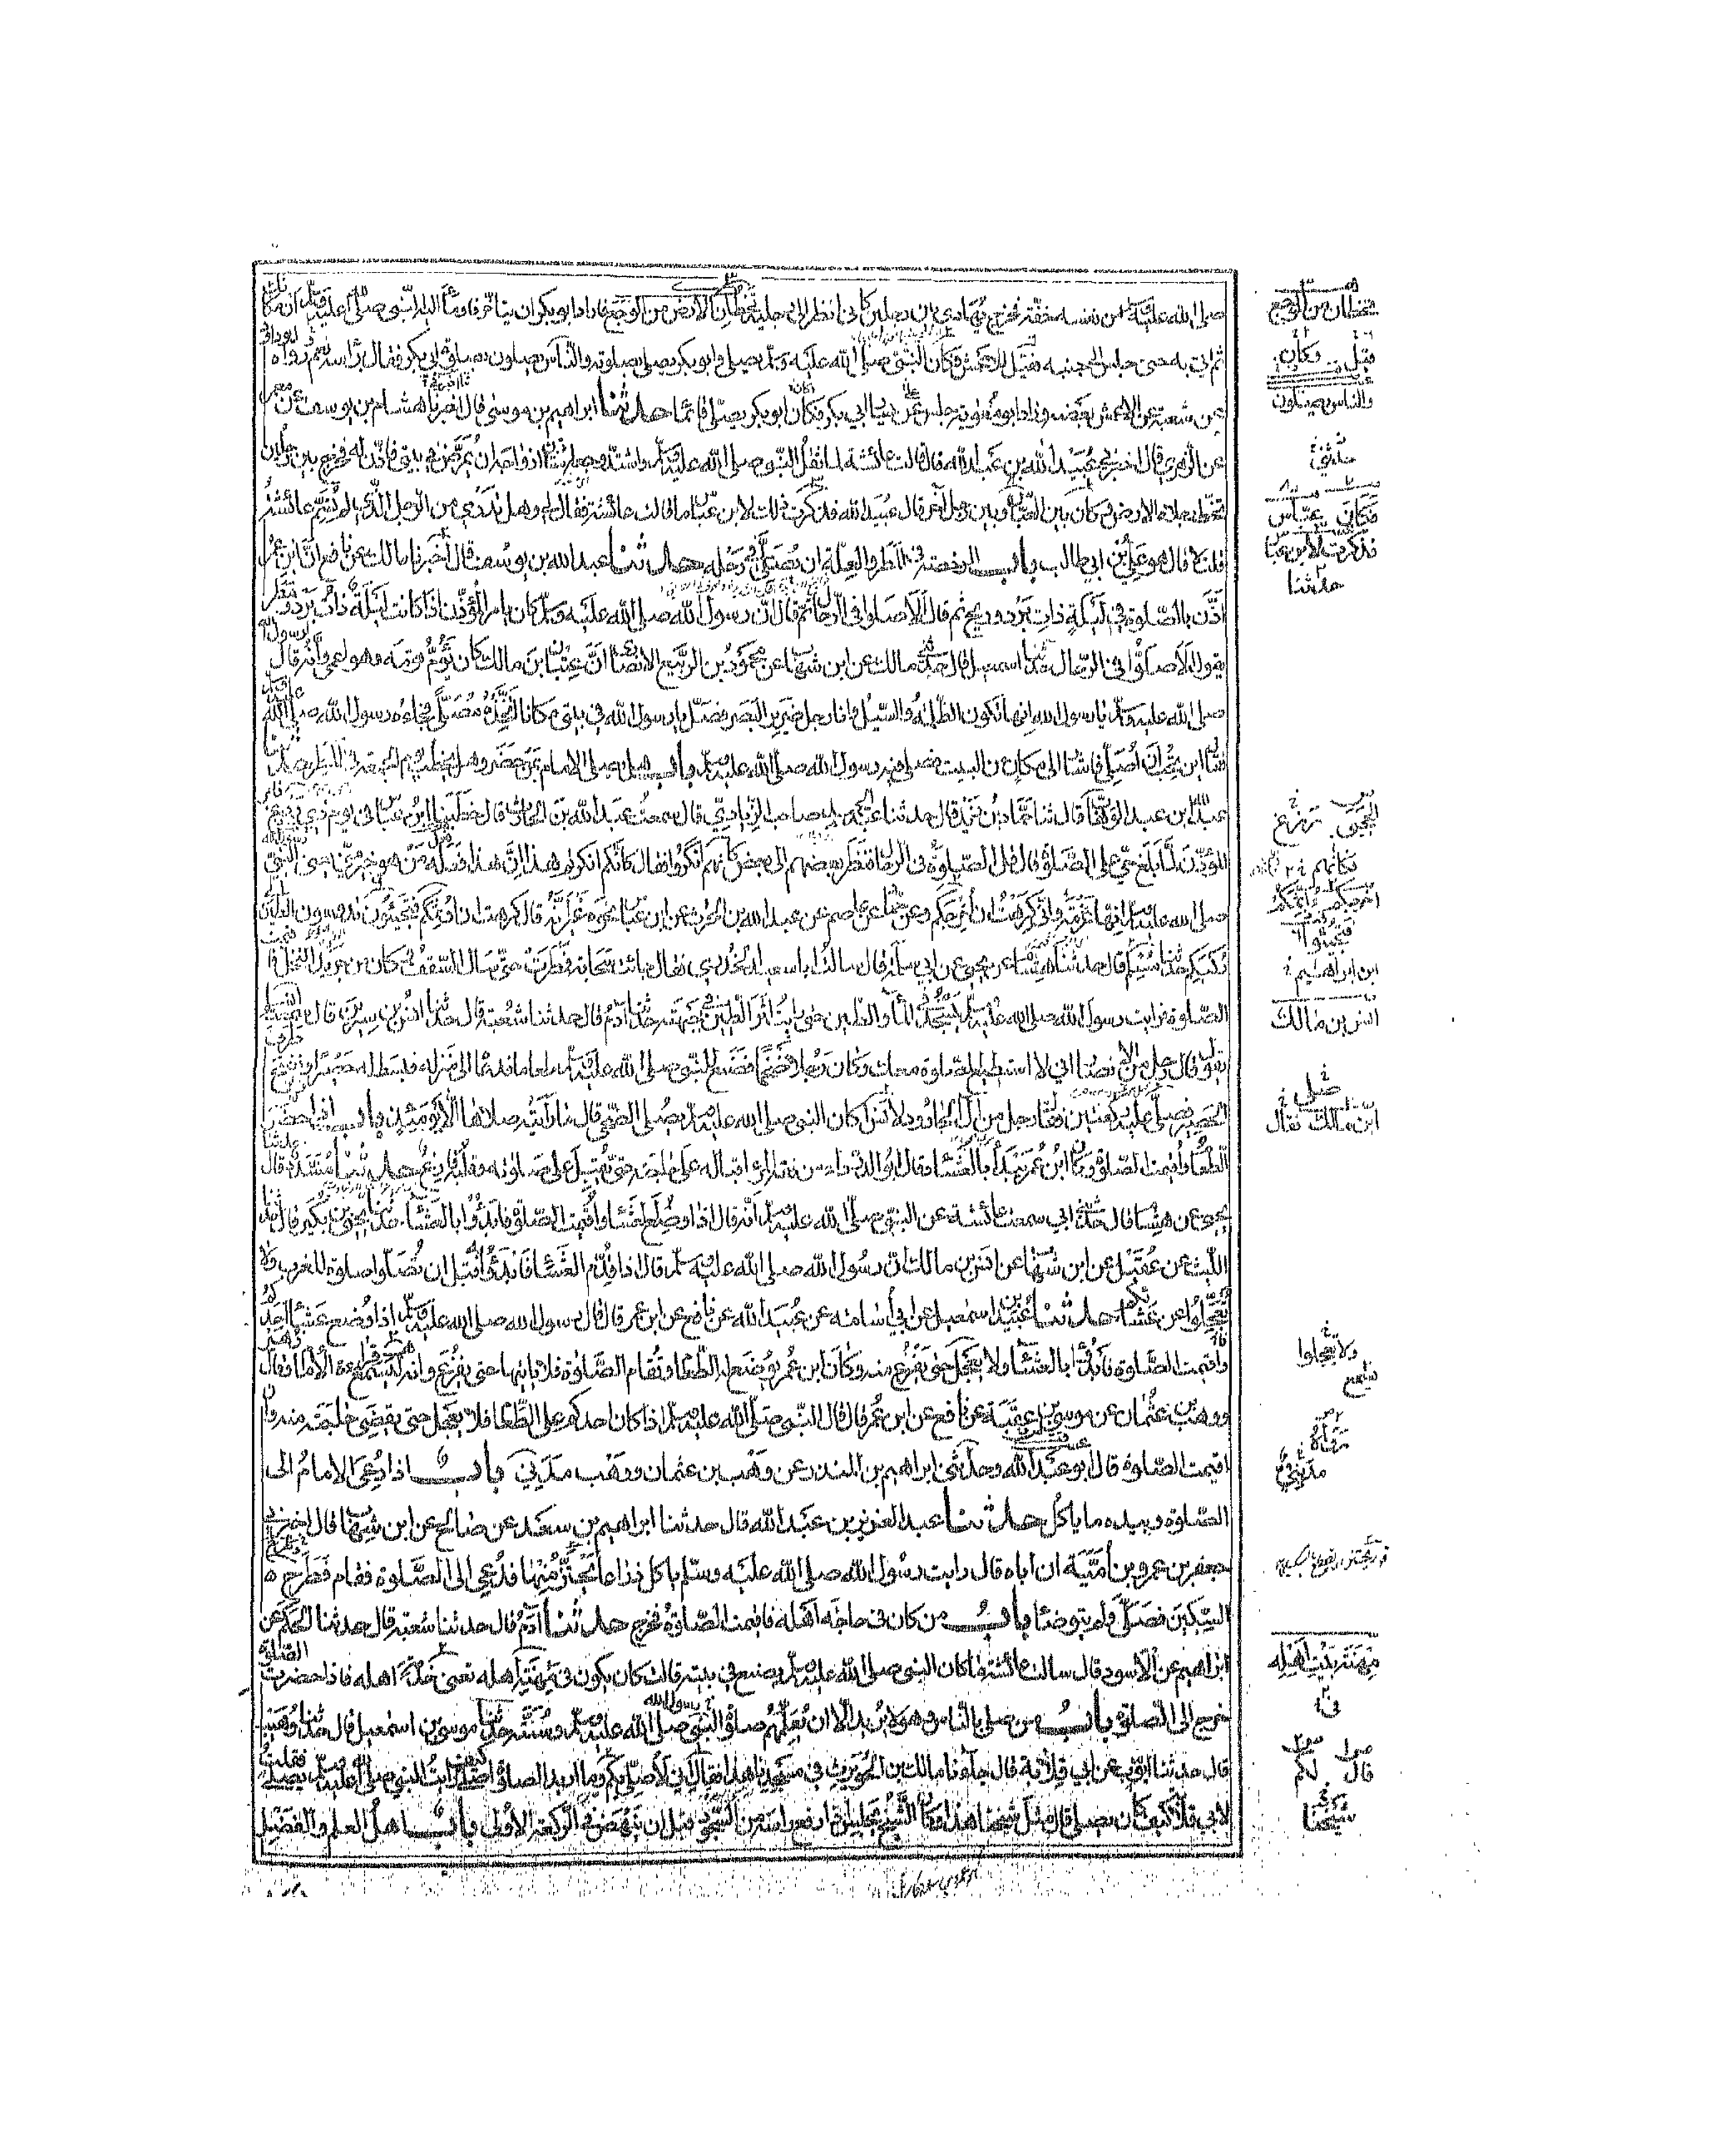 صلى الله عليه وسلم من نفسه خفة فخرج يهادى بين رجلين كاني انظر الى رجليه تخطان الارض من الوجع فاراد ابو بكر ان يتاخر فاومأ اليه النبي صلى الله عليه وسلم ان مكانك
ثم اتي به حتى جلس الى جنبه فقيل للاعمش فكان النبي صلى الله عليه وسلم يصلي وابو بكر يصلي بصلوته والناس يصلون بصلوة ابي بكر فقال براسه نعم رواه ابو داود
عن شعبة عن الاعمش بعضه وزاد ابو معوية جلس عن يسار ابي بكر فكان ابو بكر يصلي قائما حدثنا ابراهيم بن موسى قال اخبرنا هشام بن يوسف عن معمر
عن الزهري قال اخبرني عبيد الله بن عبد الله قال قالت عائشة لما ثقل النبي صلى الله عليه وسلم واشتد وجعه استأذن ازواجه ان يمرض في بيتي فاذن له فخرج بين رجلين
تخط رجلاه الارض وكان بين العباس وبين رجل اخر قال عبيد الله فذكرت ذلك لابن عباس ما قالت عائشة فقال لي وهل تدري من الرجل الذي لم تسم عائشة
قلت لا قال هو علي بن ابي طالب باب الرخصة في المطر والعلة ان يصلي في رحله حدثنا عبد الله بن يوسف قال اخبرنا مالك عن نافع ان ابن عمر
اذن بالصلوة في ليلة ذات برد وريح ثم قال الا صلوا في الرحال ثم قال ان رسول الله صلى الله عليه وسلم كان يامر المؤذن اذا كانت ليلة ذات برد ومطر
يقول الا صلوا في الرحال حدثنا اسمعيل قال حدثني مالك عن ابن شهاب عن محمود بن الربيع الانصاري ان عتبان بن مالك كان يؤم قومه وهو اعمى وانه قال لرسول الله
صلى الله عليه وسلم يا رسول الله انها تكون الظلمة والسيل وانا رجل ضرير البصر فصل يا رسول الله في بيتي مكانا اتخذه مصلى فجاءه رسول الله صلى الله عليه وسلم
فقال اين تحب ان اصلي فاشار الى مكان من البيت فصلى فيه رسول الله صلى الله عليه وسلم باب هل يصلي الامام بمن حضر وهل يخطب يوم الجمعة في المطر حدثنا
عبد الله بن عبد الوهاب قال ثنا حماد بن زيد قال حدثنا عبد الحميد صاحب الزيادي قال سمعت عبد الله بن الحارث قال خطبنا ابن عباس في يوم ذي ردغ فامر
المؤذن لما بلغ حي على الصلوة قال قل الصلوة في الرحال فنظر بعضهم الى بعض كانهم انكروا فقال كانكم انكرتم هذا ان هذا فعله من هو خير مني يعني النبي
صلى الله عليه وسلم انها عزمة واني كرهت ان احرجكم وعن حماد عن عاصم عن عبد الله بن الحارث عن ابن عباس نحوه غير انه قال كرهت ان اؤثمكم فتجيئون تدوسون الطين الى
ركبكم حدثنا مسلم قال حدثنا هشام عن يحيى عن ابي سلمة قال سالت ابا سعيد الخدري فقال جاءت سحابة فمطرت حتى سال السقف وكان من جريد النخل فاقيمت
الصلوة فرايت رسول الله صلى الله عليه وسلم يسجد في الماء والطين حتى رايت اثر الطين في جبهته حدثنا ادم قال حدثنا شعبة قال حدثنا انس بن سيرين قال سمعت انسا
يقول قال رجل من الانصار اني لا استطيع الصلوة معك وكان رجلا ضخما فصنع للنبي صلى الله عليه وسلم طعاما فدعاه الى منزله فبسط له حصيرا ونضح طرف
الحصير فصلى عليه ركعتين فقال رجل من ال الجارود لانس اكان النبي صلى الله عليه وسلم يصلي الضحى قال ما رأيته صلاها الا يومئذ باب اذا حضر
الطعام واقيمت الصلوة وكان ابن عمر يبدأ بالعشاء وقال ابو الدرداء من فقه المرء اقباله على حاجته حتى يقبل على صلوته وقلبه فارغ حدثنا مسدد قال حدثنا
يحيى عن هشام قال حدثني ابي سمعت عائشة عن النبي صلى الله عليه وسلم انه قال اذا وضع العشاء واقيمت الصلوة فابدؤا بالعشاء حدثنا يحيى بن بكير قال ثنا
الليث عن عقيل عن ابن شهاب عن انس بن مالك ان رسول الله صلى الله عليه وسلم قال اذا قدم العشاء فابدؤا به قبل ان تصلوا صلوة المغرب ولا
تعجلوا عن عشائكم حدثنا عبيد بن اسمعيل عن ابي اسامة عن عبيد الله عن نافع عن ابن عمر قال قال رسول الله صلى الله عليه وسلم اذا وضع عشاء احدكم
واقيمت الصلوة فابدؤا بالعشاء ولا يعجل حتى يفرغ منه وكان ابن عمر يوضع له الطعام وتقام الصلوة فلا ياتيها حتى يفرغ وانه ليسمع قراءة الامام وقال زهير
ووهب بن عثمان عن موسى بن عقبة عن نافع عن ابن عمر قال قال النبي صلى الله عليه وسلم اذا كان احدكم على الطعام فلا يعجل حتى يقضي حاجته منه وان
اقيمت الصلوة قال ابو عبد الله وحدثني ابراهيم بن المنذر عن وهب بن عثمان ووهب مديني باب اذا دعي الامام الى
الصلوة وبيده ما ياكل حدثنا عبد العزيز بن عبد الله قال حدثنا ابراهيم بن سعد عن صالح عن ابن شهاب قال اخبرني
جعفر بن عمرو بن امية ان اباه قال رايت رسول الله صلى الله عليه وسلم ياكل ذراعا يحتز منها فدعي الى الصلوة فقام فطرح
السكين فصلى ولم يتوضا باب من كان في حاجة اهله فاقيمت الصلوة فخرج حدثنا ادم قال حدثنا شعبة قال حدثنا الحكم عن
ابراهيم عن الاسود قال سالت عائشة ما كان النبي صلى الله عليه وسلم يصنع في بيته قالت كان يكون في مهنة اهله تعني خدمة اهله فاذا حضرت الصلوة
خرج الى الصلوة باب من صلى بالناس وهو لا يريد الا ان يعلمهم صلوة النبي صلى الله عليه وسلم وسنته حدثنا موسى بن اسمعيل قال حدثنا وهيب
قال حدثنا ايوب عن ابي قلابة قال جاءنا مالك بن الحويرث في مسجدنا هذا فقال اني لاصلي بكم وما اريد الصلوة اصلي كيف رايت النبي صلى الله عليه وسلم يصلي فقلت
لابي قلابة كيف كان يصلي قال مثل شيخنا هذا وكان الشيخ يجلس اذا رفع راسه من السجود قبل ان ينهض في الركعة الاولى باب اهل العلم والفضل
يخطان من الوجع
فقيل وكان
والناس يصلون
حدثني
فكان عباس
فذكرت لابن عباس
حدثنا
ابن ابراهيم
انس بن مالك
صلى
ابن مالك فقال
ولا تعجلوا
مهنة بيت اهله
في
قال لكم
شيخنا